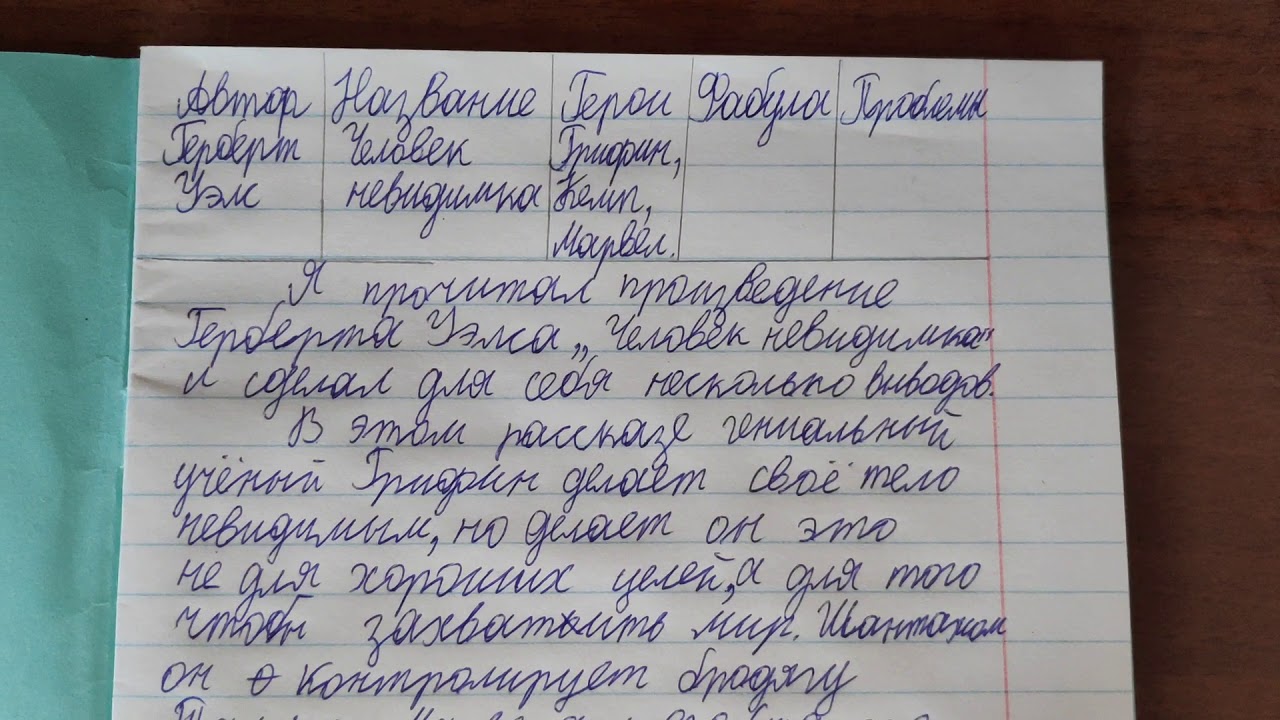 Автор Название Герои Фабула Проблемы
Герберт Человек Грифин,
Уэлс невидимка Кемп,
Марвел.
Я прочитал произведение
Герберта Уэлса „Человек невидимка“
и сделал для себя несколько выводов.
В этом рассказе гениальный
учёный Грифин делает своё тело
невидимым, но делает он это
не для хороших целей, а для того
чтобы захватить мир. Шантажом
он контролирует бродягу